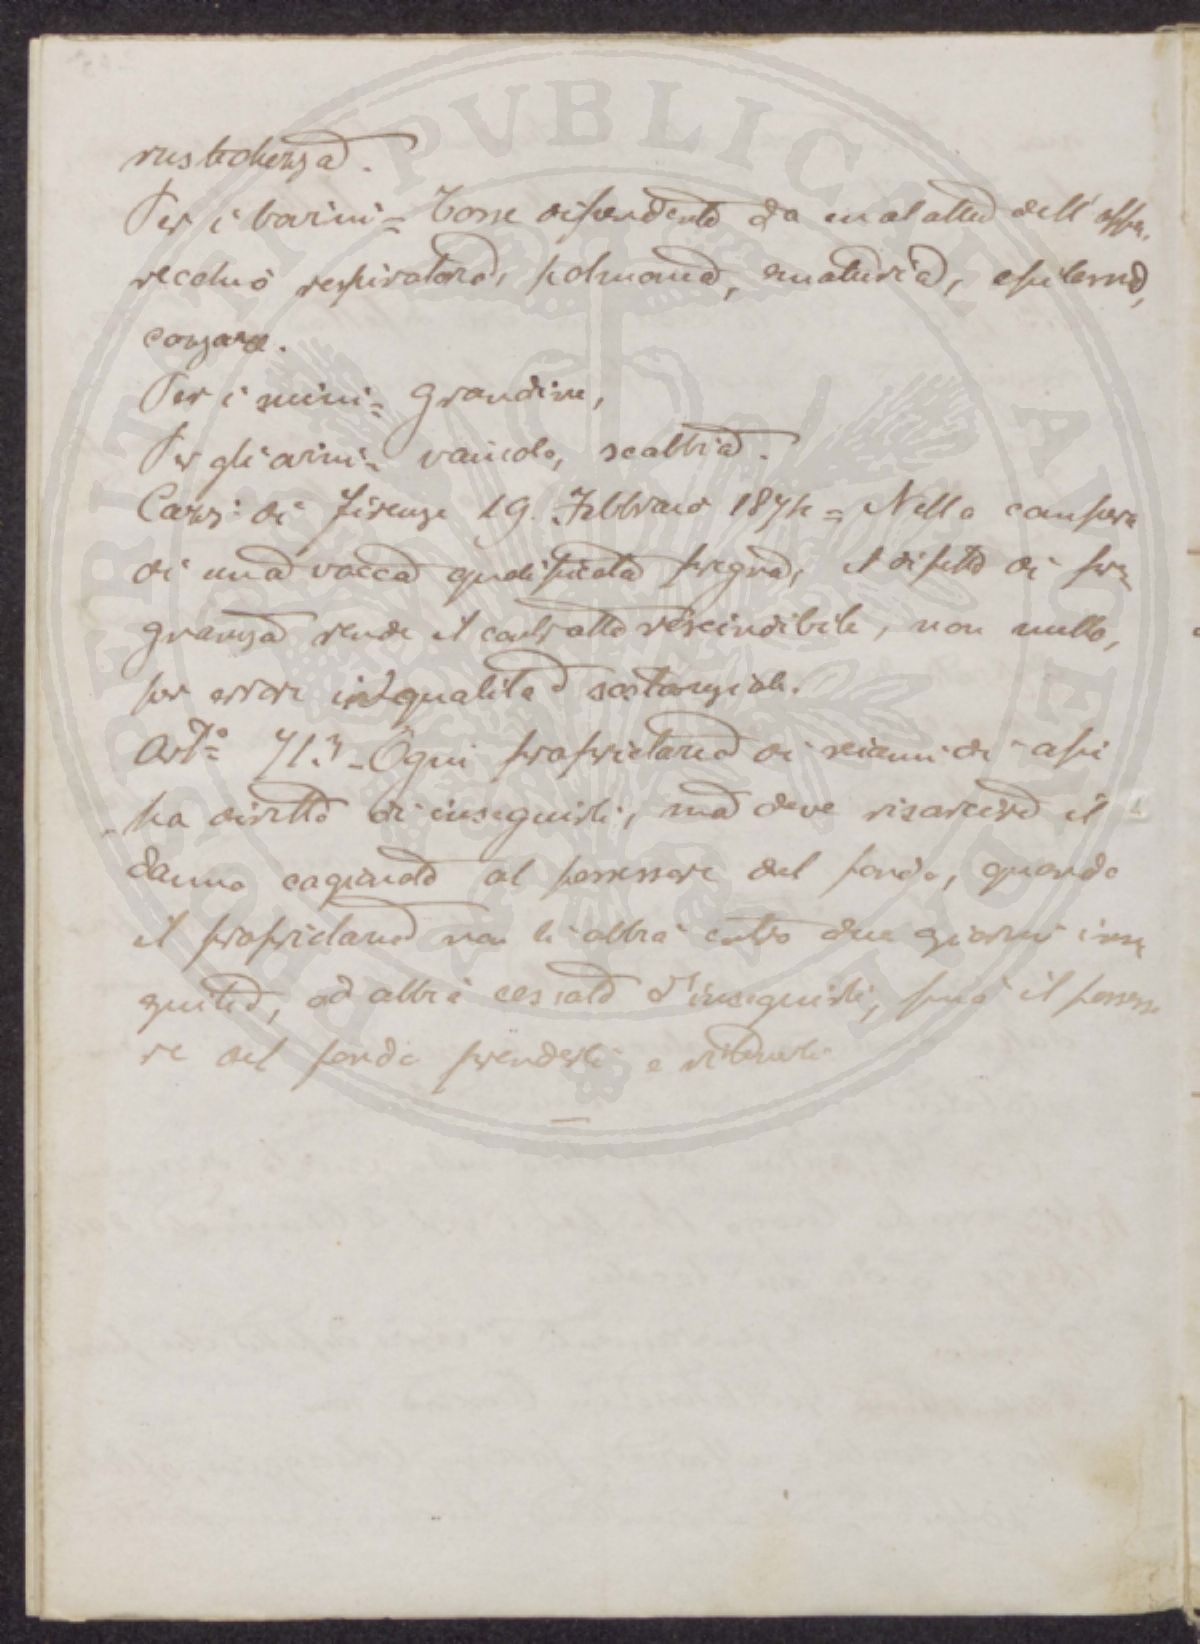 rustichezza.
Per i bovini = Tosse dipendente da malattia dell'appa-
recchio respiratorio, polmonea, ematuria, epilessia,
Per i suini = Grandine,
Per gli ovini = vaiuolo, scabbia.
Cassz: di Firenze 19. Febbraio 1874 = Nella compera
di una vacca qualificata pregna, il difetto di pre=
gnanza rende il contratto rescindibile, non nullo,
per errore in qualità sostanziale.
Art.° 713 - Ogni proprietario di sciami di api
ha diritto di inseguirli, ma deve risarcire il
danno cagionato al possessore del fondo, quando
il proprietario non li abbia entro due giorni inse=
guiti, od abbia cessato d'inseguirli, può il possesso
re del fondo prenderli e ritenerli
PERITIA PUBLICAE